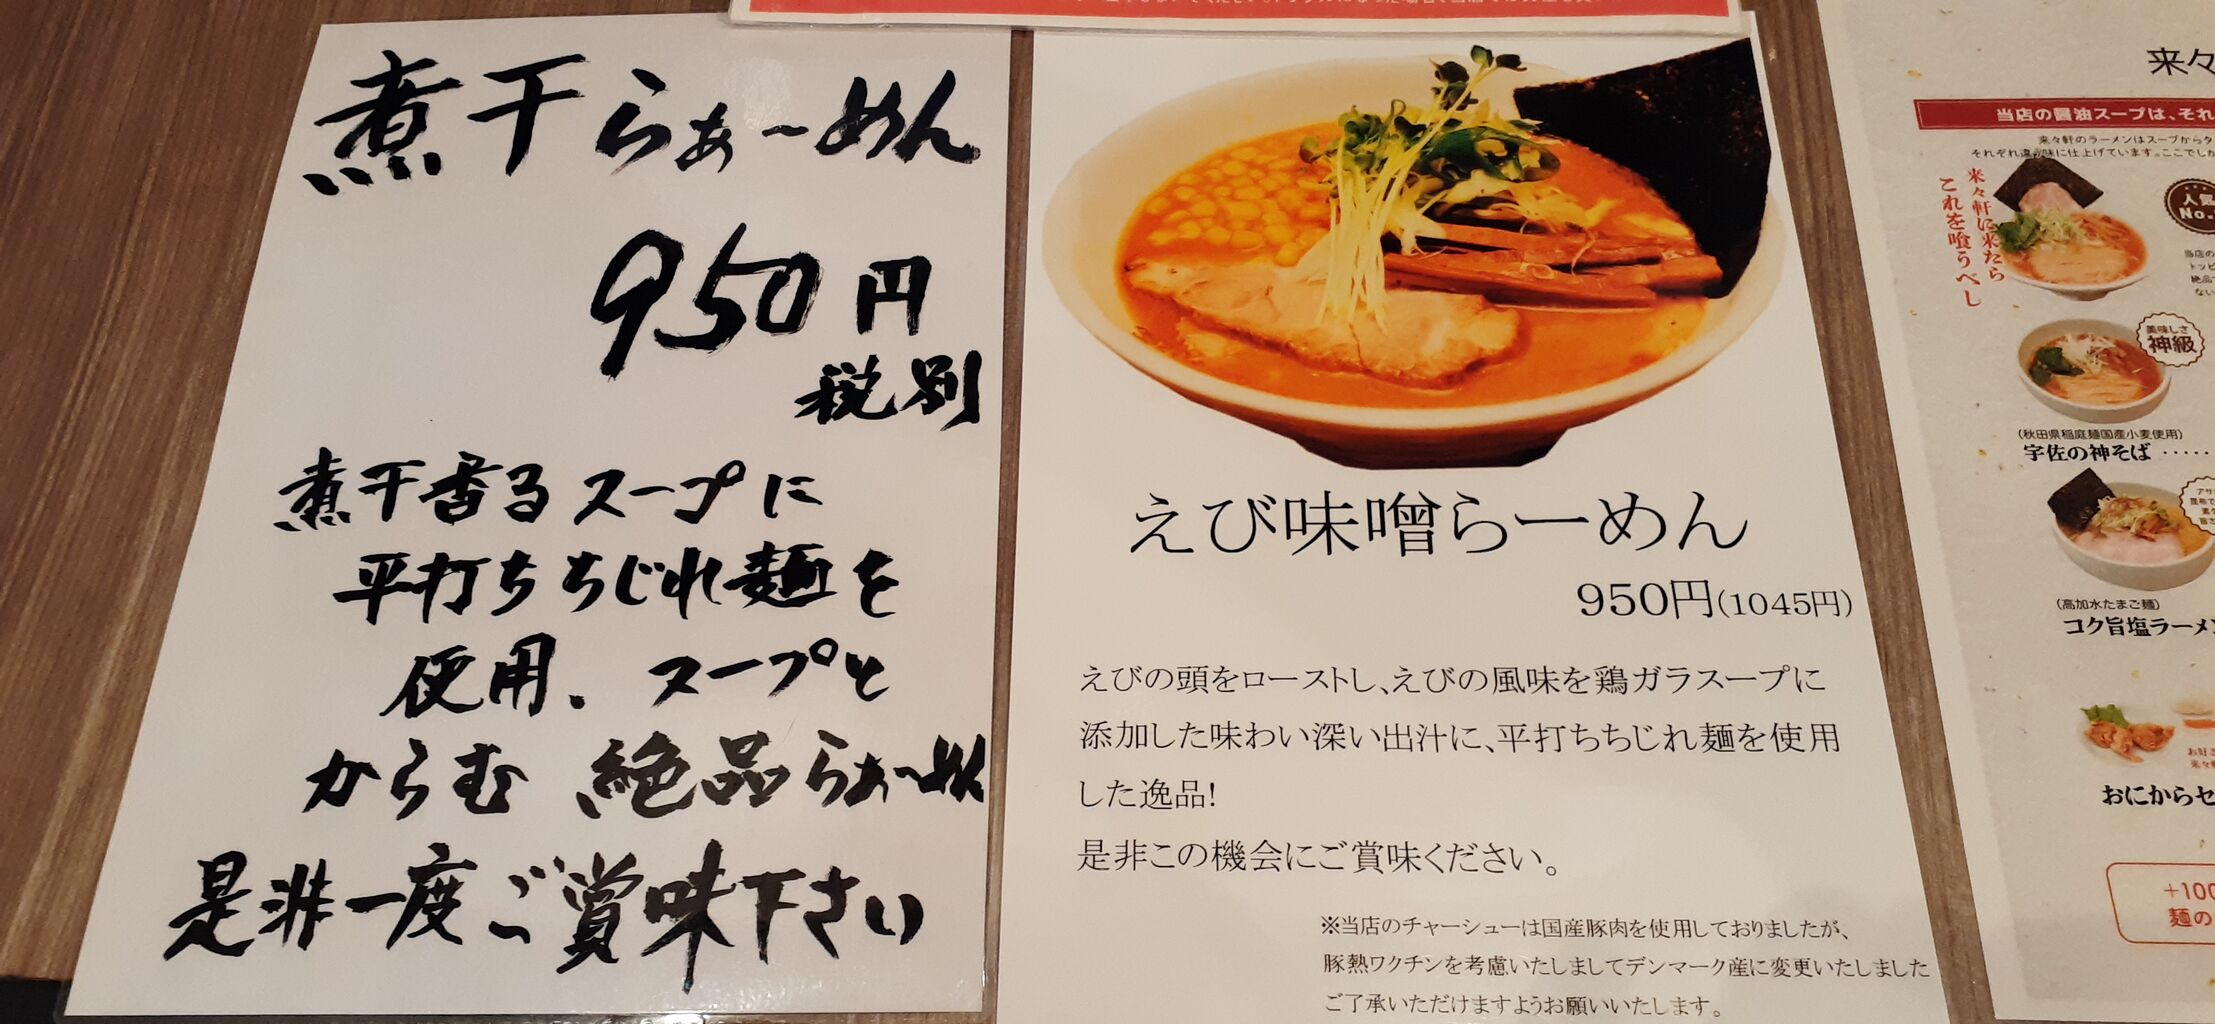 煮干らぁ~めん
950円
税別
煮干香るスープに
平打ちちじれ麺を
使用.スープと
からむ 絶品らぁ~めん
是非一度ご賞味下さい
えび味噌らーめん
950円(1045円)
えびの頭をローストし、えびの風味を鶏ガラスープに
添加した味わい深い出汁に、平打ちちじれ麺を使用
した逸品!
是非この機会にご賞味ください。
※当店のチャーシューは国産豚肉を使用しておりましたが、
豚熱ワクチンを考慮いたしましてデンマーク産に変更いたしました
ご了承いただけますようお願いいたします。
来々
当店の醤油スープは、それ
来々軒のラーメンはスープからタ
それぞれ違う味に仕上げています。ここでしか
来々軒に来たら
これを喰うべし
人気
No.
当店の
トッピ
絶品
ない
美味しさ
神級
(秋田県稲庭麺国産小麦使用)
宇佐の神そば ‥‥‥
アサ
昆布で
旨さ
(高加水たまご麺)
コク旨塩ラーメン
お好き
来々軒
おにからセ
+100
麺の